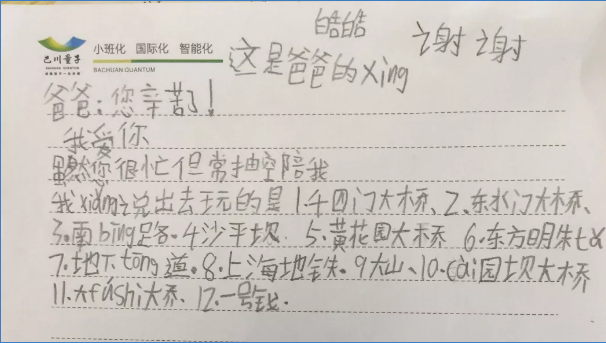 皓皓
谢谢
小班化 国际化 智能化
巴川量子
BACHUAN QUANTUM
这是爸爸的xing
爸爸:您辛苦了!
我爱你
虽然您很忙但常抽空陪我
我xiǎng说出去玩的是 1.千四门大桥、2、东水门大桥、
3.南bīng路.4沙平坝. 5、黄花园大桥 6.东方明朱
7.地下tong道。8.上海地铁。9大山、10.cài园坝大桥
11.大fúshi大桥、12.一号线.